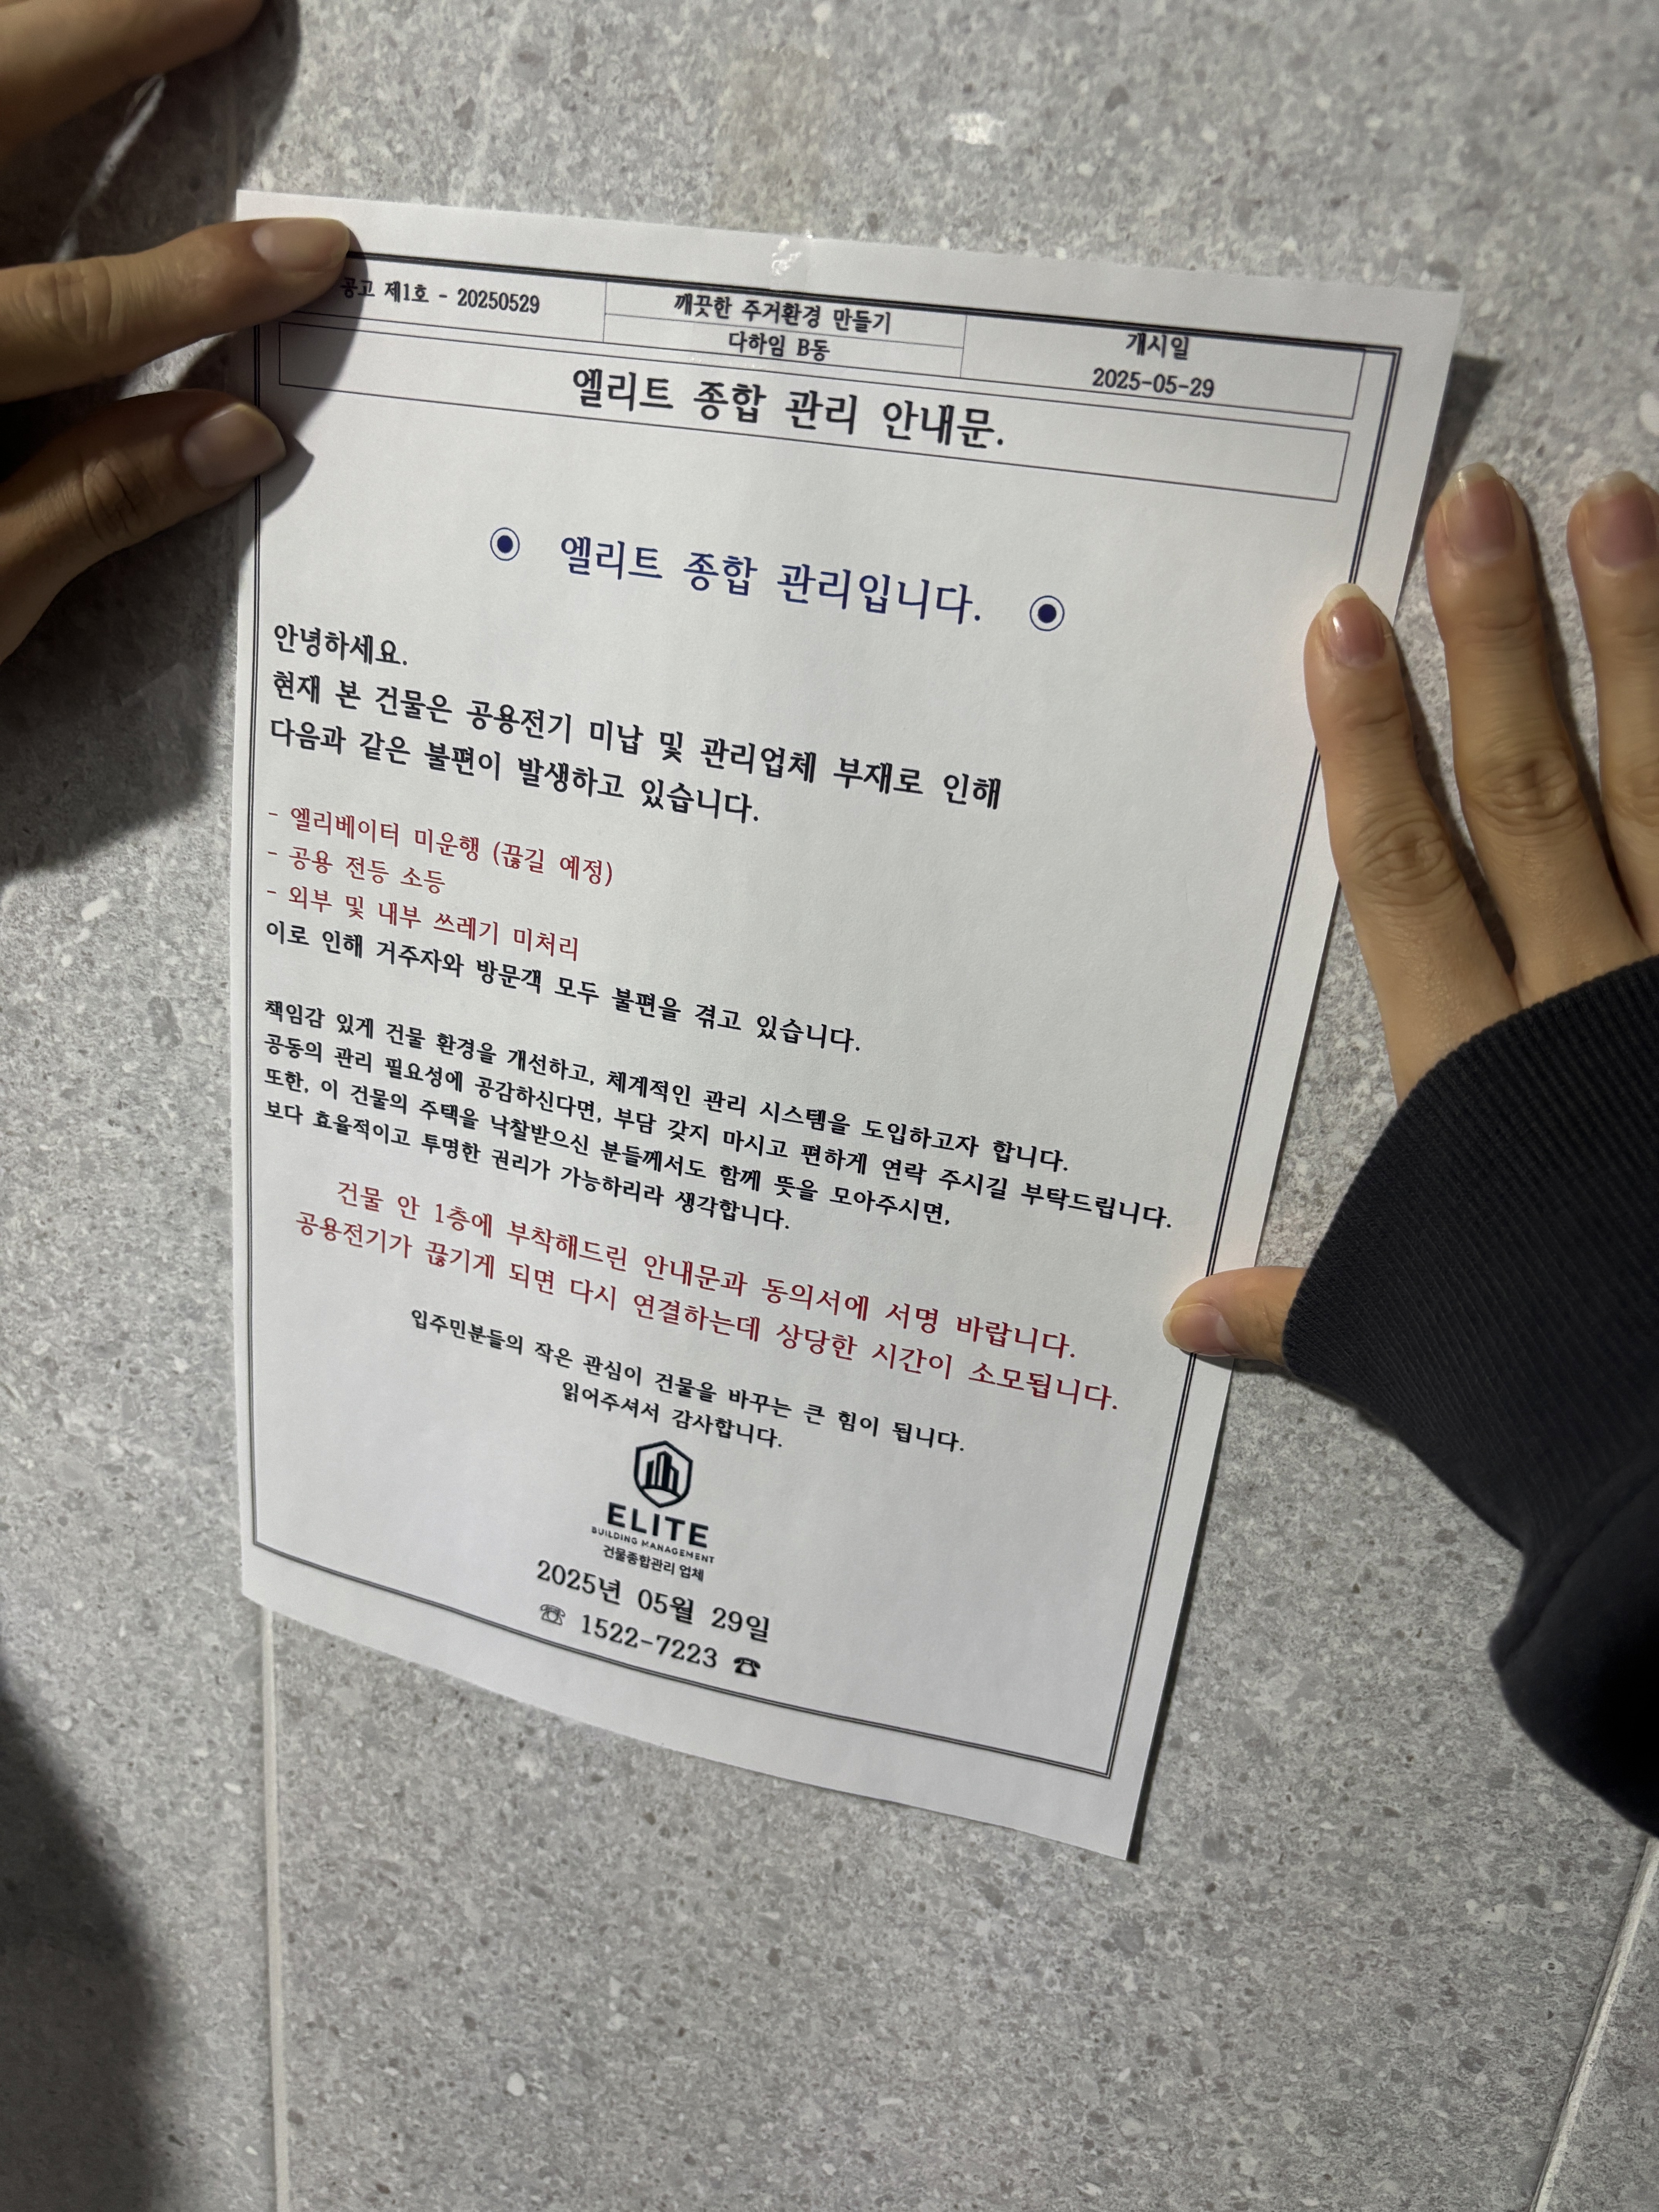 공고 제1호 - 20250529
깨끗한 주거환경 만들기
다하임 B동
개시일
2025-05-29
엘리트 종합 관리 안내문.
◉ 엘리트 종합 관리입니다. ◉
안녕하세요.
현재 본 건물은 공용전기 미납 및 관리업체 부재로 인해
다음과 같은 불편이 발생하고 있습니다.
- 엘리베이터 미운행 (끊길 예정)
- 공용 전등 소등
- 외부 및 내부 쓰레기 미처리
이로 인해 거주자와 방문객 모두 불편을 겪고 있습니다.
책임감 있게 건물 환경을 개선하고, 체계적인 관리 시스템을 도입하고자 합니다.
공동의 관리 필요성에 공감하신다면, 부담 갖지 마시고 편하게 연락 주시길 부탁드립니다.
또한, 이 건물의 주택을 낙찰받으신 분들께서도 함께 뜻을 모아주시면,
보다 효율적이고 투명한 권리가 가능하리라 생각합니다.
건물 안 1층에 부착해드린 안내문과 동의서에 서명 바랍니다.
공용전기가 끊기게 되면 다시 연결하는데 상당한 시간이 소모됩니다.
입주민분들의 작은 관심이 건물을 바꾸는 큰 힘이 됩니다.
읽어주셔서 감사합니다.
ELITE
BUILDING MANAGEMENT
건물종합관리 업체
2025년 05월 29일
☏ 1522-7223 ☎